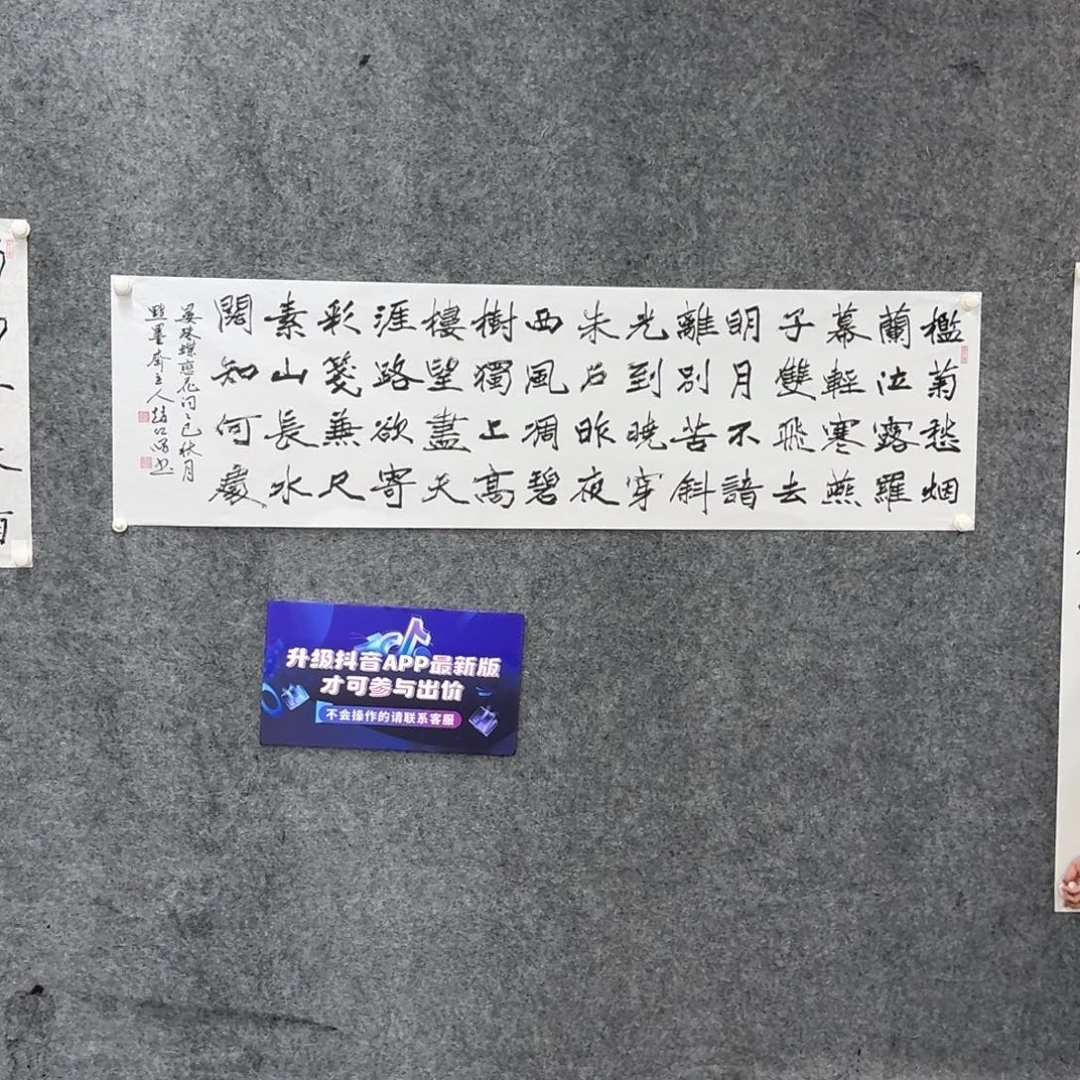 檻菊愁烟
蘭泣露羅
幕輕寒燕
子雙飛去
明月不諳
離別苦斜
光到曉穿
朱戶昨夜
西風凋碧
樹獨上高
樓望盡天
涯路欲寄
彩箋兼尺
素山長水
闊知何處
晏殊蝶戀花词乙巳秋月
點墨齋主人趙书
升级抖音APP最新版
才可参与出价
不会操作的请联系客服